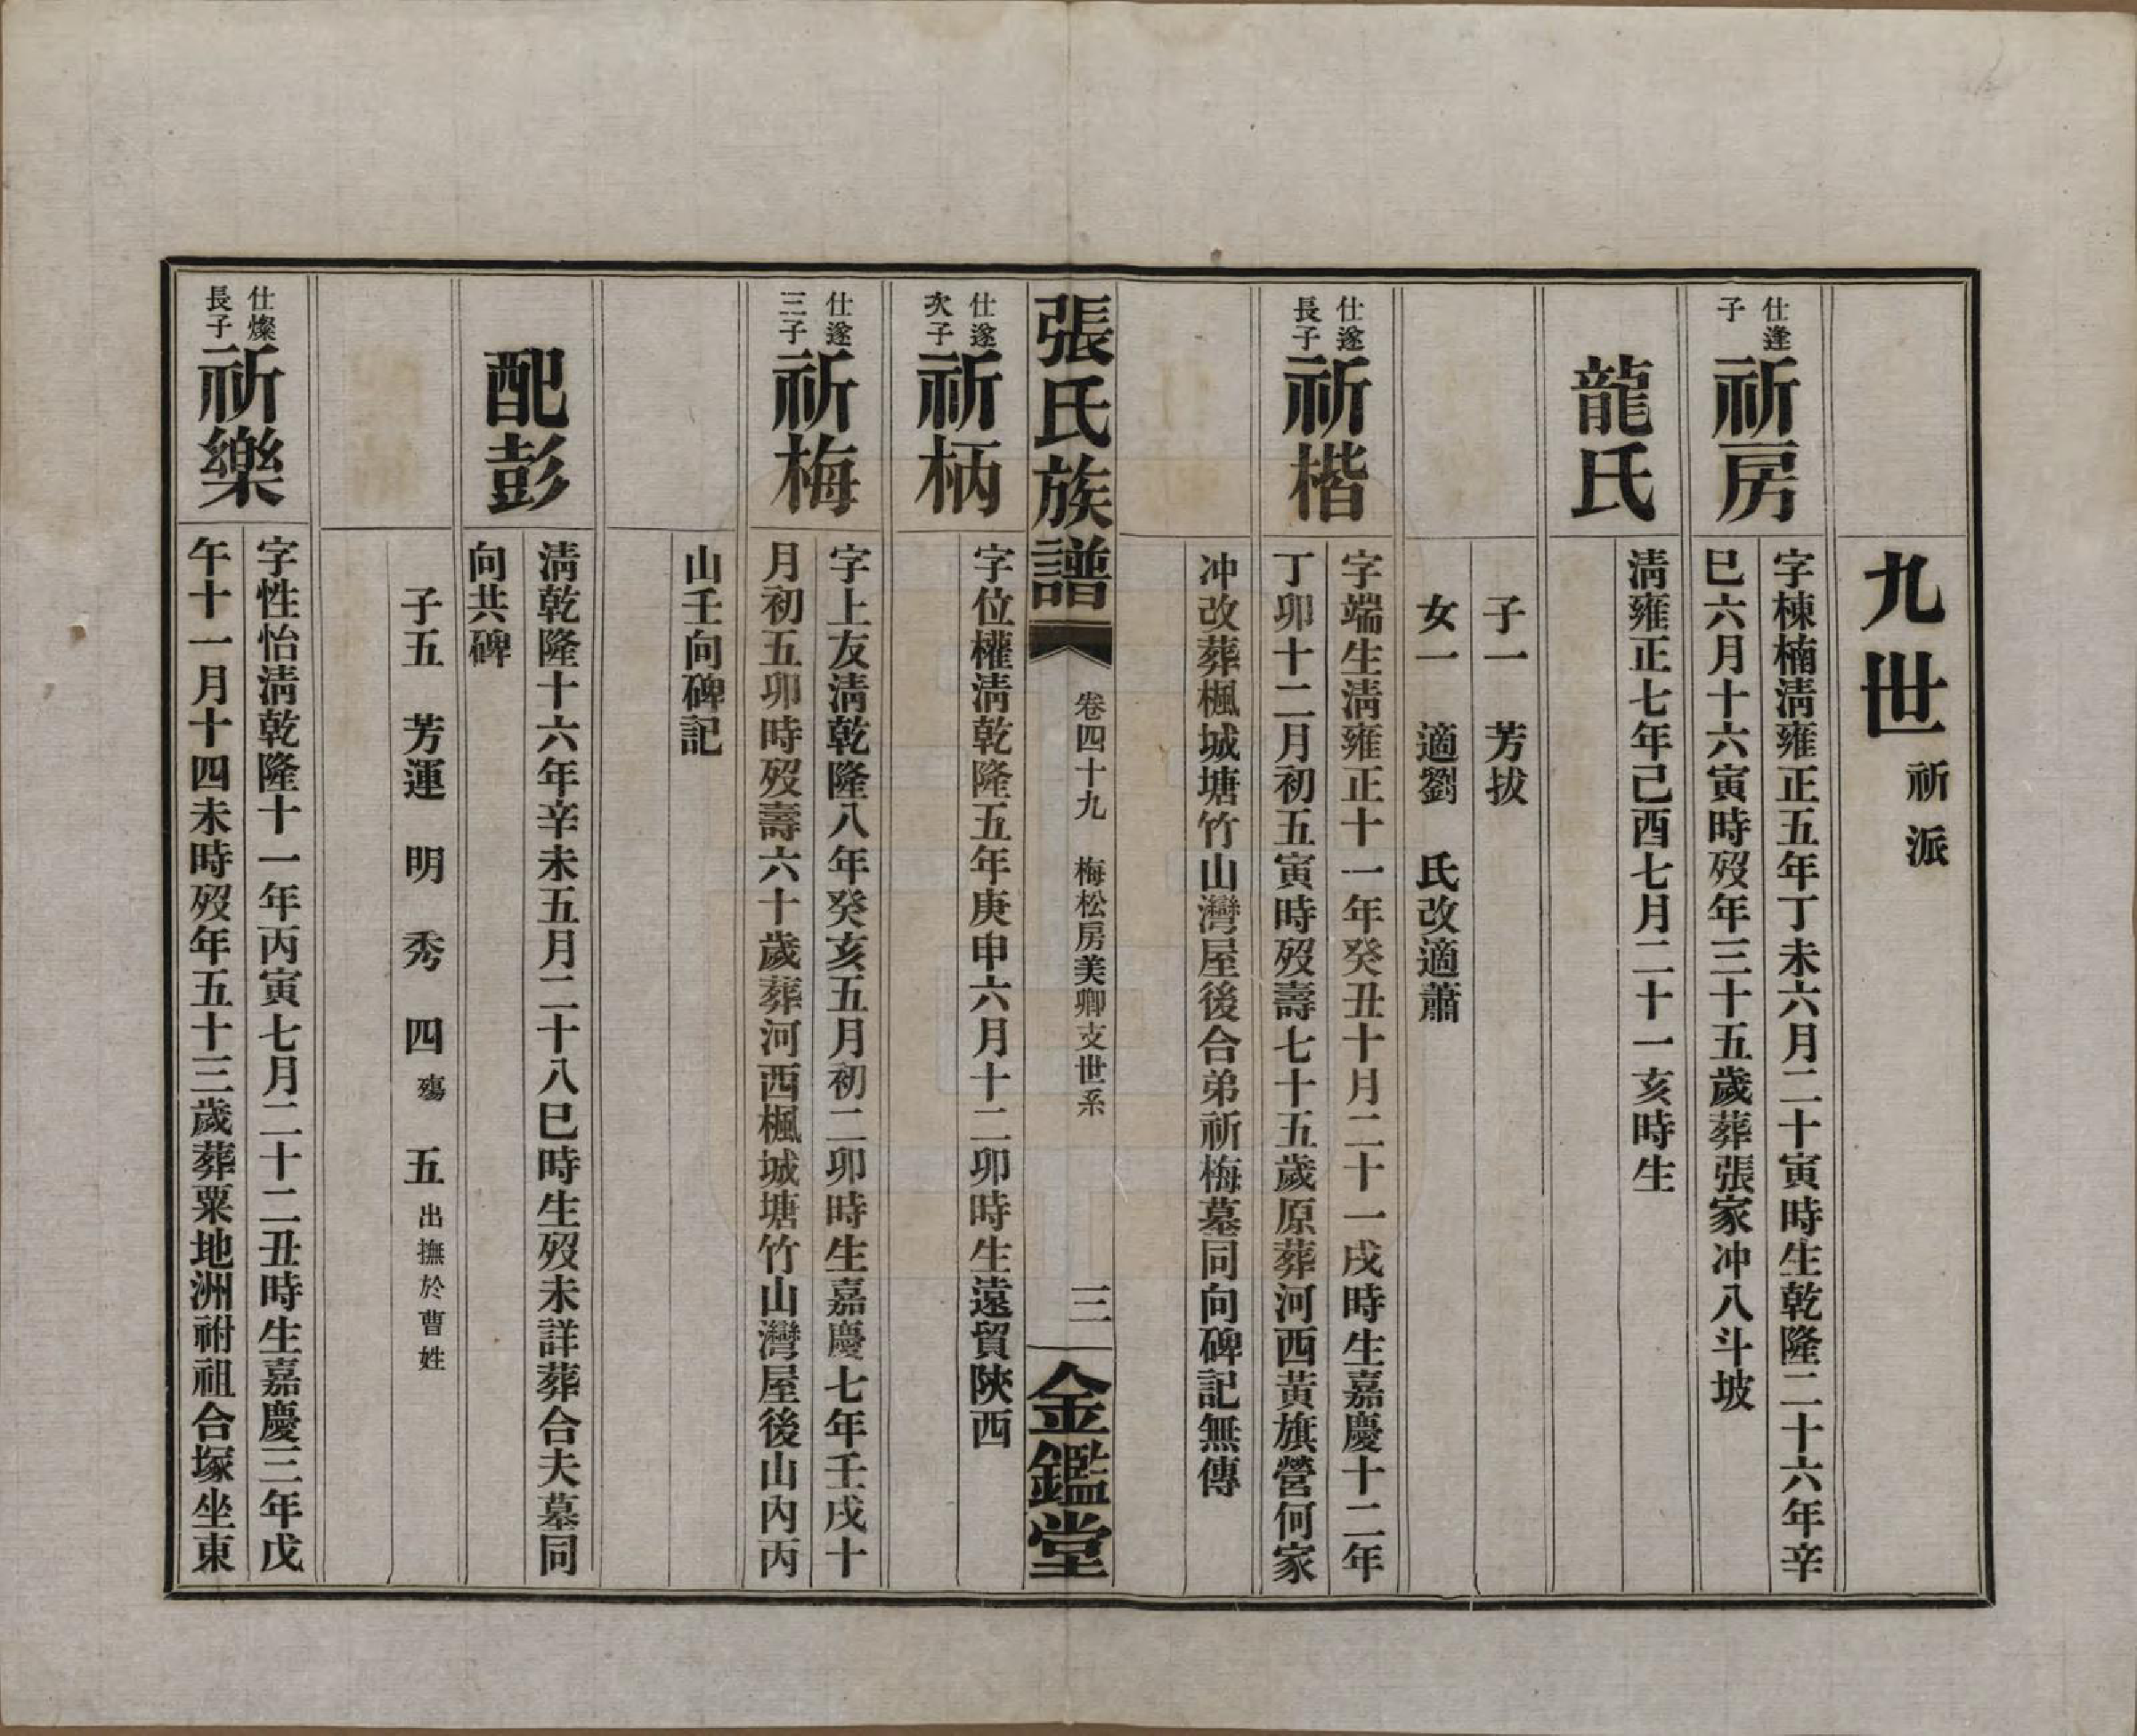 九世祈派
仕逢子
祈房
字棟楠淸雍正五年丁未六月二十寅時生乾隆二十六年辛
巳六月十六寅時歿年三十五歲葬張家冲八斗坡
龍氏
淸雍正七年己酉七月二十一亥時生
子一 芳拔
女一 適劉 氏改適蕭
仕遂長子
祈楷
字端生淸雍正十一年癸丑十月二十一戌時生嘉慶十二年
丁卯十二月初五寅時歿壽七十五歲原葬河西黃旗營何家
冲改葬楓城塘竹山灣屋後合弟祈梅墓同向碑記無傳
張氏族譜
卷四十九 梅松房美卿支世系
三
金鑑堂
仕遂次子
祈柄
字位權淸乾隆五年庚申六月十二卯時生遠貿陝西
仕遂三子
祈梅
字上友淸乾隆八年癸亥五月初二卯時生嘉慶七年壬戌十
月初五卯時歿壽六十歲葬河西楓城塘竹山灣屋後山內丙
山壬向碑記
配彭
淸乾隆十六年辛未五月二十八巳時生歿未詳葬合夫墓同
向共碑
子五 芳運 明 秀 四殤 五出撫於曹姓
仕燦長子
祈樂
字性怡淸乾隆十一年丙寅七月二十二丑時生嘉慶三年戊
午十一月十四未時歿年五十三歲葬粟地洲祔祖合塚坐東